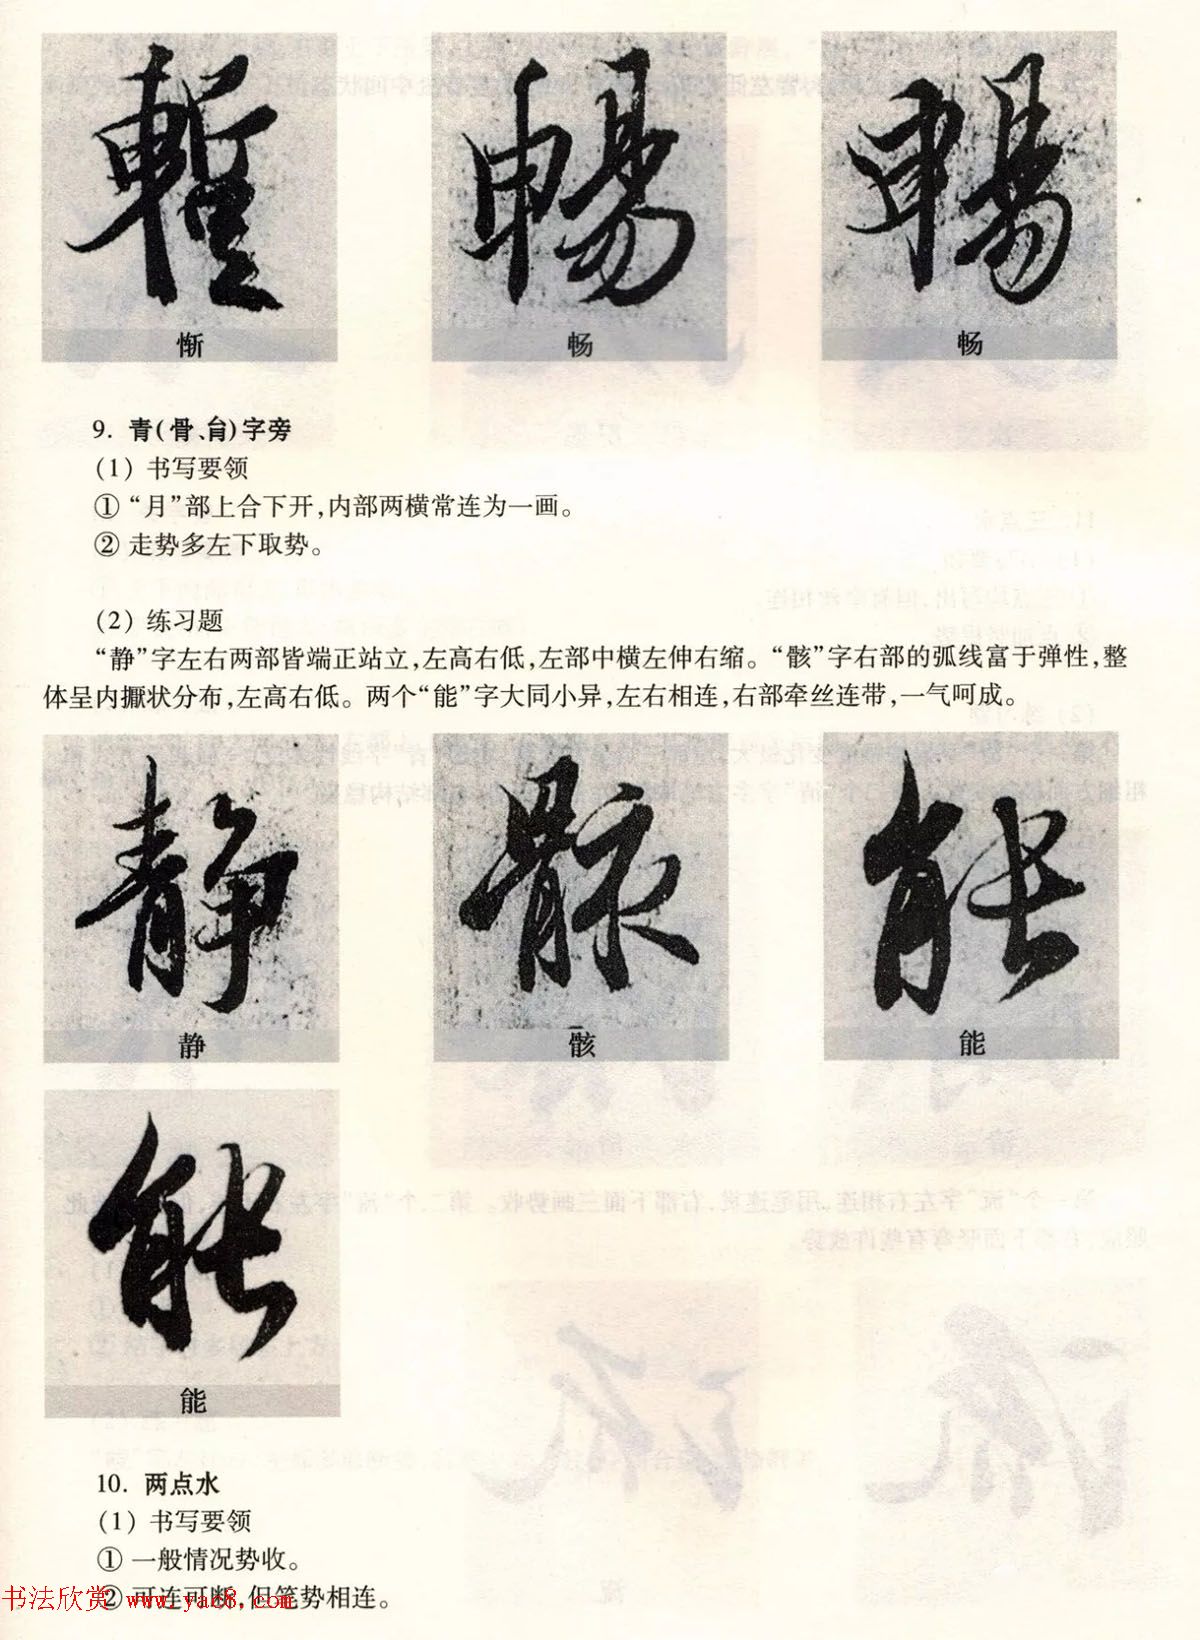 惭 畅 畅
9. 青(骨、㠯)字旁
(1) 书写要领
① “月”部上合下开,内部两横常连为一画。
② 走势多左下取势。
(2) 练习题
“静”字左右两部皆端正站立,左高右低,左部中横左伸右缩。“骸”字右部的弧线富于弹性,整
体呈内擫状分布,左高右低。两个“能”字大同小异,左右相连,右部牵丝连带,一气呵成。
静 骸 能
能
10. 两点水
(1) 书写要领
① 一般情况势收。
② 可连可断,但笔势相连。
书法欣赏 www.yac8.com